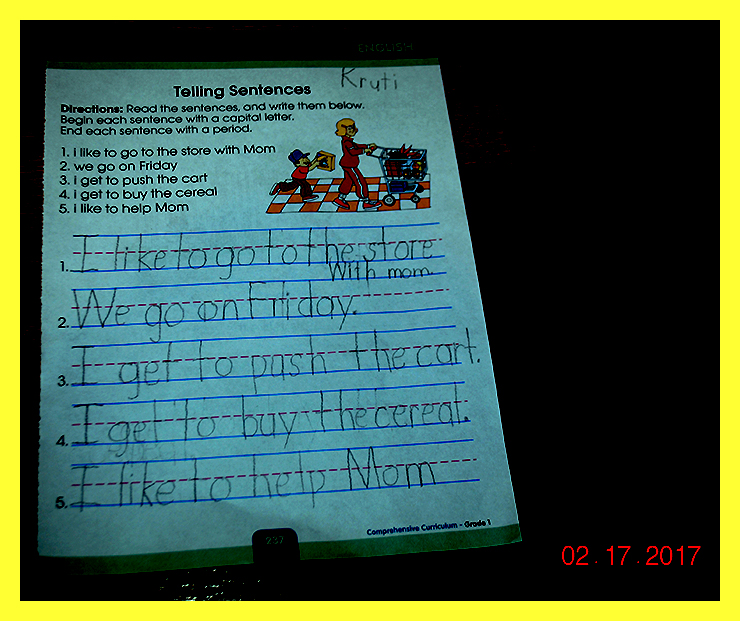 ENGLISH
Kruti
Telling Sentences
Directions: Read the sentences, and write them below.
Begin each sentence with a capital letter.
End each sentence with a period.
1. i like to go to the store with Mom
2. we go on Friday
3. i get to push the cart
4. i get to buy the cereal
5. i like to help Mom
1. I like to go to the store
With mom.
2. We go on Friday.
3. I get to push the cart.
4. I get to buy the cereal.
5. I like to help Mom
237
Comprehensive Curriculum - Grade 1
02.17.2017